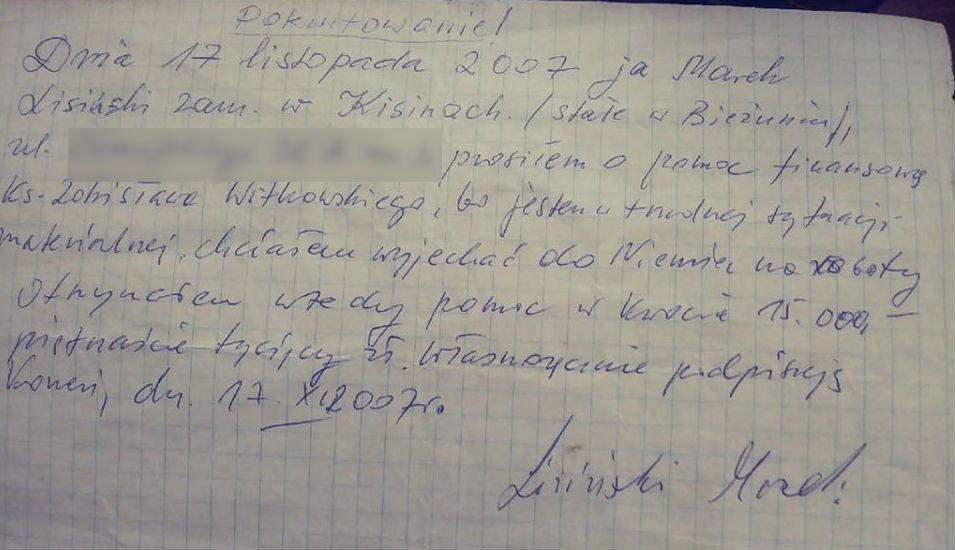 Pokwitowanie!
Dnia 17 listopada 2007 ja Marek
Lisiński zam. w Kisinach. /stale w Bieżuniu/,
ul. prosiłem o pomoc finansową
ks. Zdzisława Witkowskiego, bo jestem w trudnej sytuacji
materialnej, chciałem wyjechać do Niemiec na roboty
Otrzymałem wtedy pomoc w kwocie 15.000,-
piętnaście tysięcy zł. Własnoręcznie podpisuję
dn. 17 XI 2007r.
Lisiński Marek